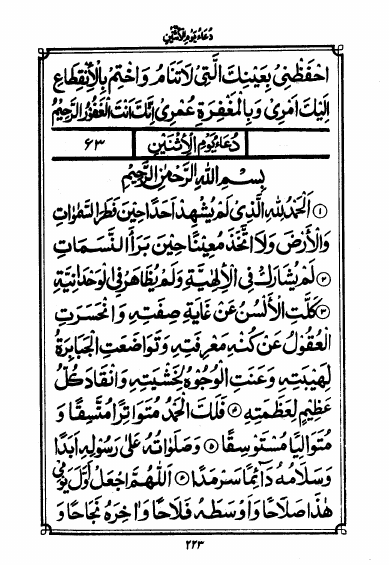 دُعَاءُ يَوْمِ الْاِثْنَيْنِ
احْفَظْنِيْ بِعَيْنِكَ الَّتِيْ لَا تَنَامُ وَاخْتِمْ بِالْاِنْقِطَاعِ
اِلَيْكَ اَمْرِيْ وَبِالْمَغْفِرَةِ عُمْرِيْ اِنَّكَ اَنْتَ الْغَفُوْرُ الرَّحِيْمُ
دُعَاءُ يَوْمِ الْاِثْنَيْنِ ۶۳
بِسْمِ اللهِ الرَّحْمٰنِ الرَّحِيْمِ
① اَلْحَمْدُ لِلّٰهِ الَّذِيْ لَمْ يُشْهِدْ اَحَدًا حِيْنَ فَطَرَ السَّمٰوَاتِ
وَالْاَرْضَ وَلَا اتَّخَذَ مُعِيْنًا حِيْنَ بَرَأَ النَّسَمَاتِ
② لَمْ يُشَارَكْ فِي الْاِلٰهِيَّةِ وَلَمْ يُظَاهَرْ فِي الْوَحْدَانِيَّةِ
③ كَلَّتِ الْاَلْسُنُ عَنْ غَايَةِ صِفَتِهٖ وَانْحَسَرَتِ
الْعُقُوْلُ عَنْ كُنْهِ مَعْرِفَتِهٖ وَتَوَاضَعَتِ الْجَبَابِرَةُ
لِهَيْبَتِهٖ وَعَنَتِ الْوُجُوْهُ لِخَشْيَتِهٖ وَانْقَادَ كُلُّ
عَظِيْمٍ لِعَظَمَتِهٖ فَلَكَ الْحَمْدُ مُتَوَاتِرًا مُتَّسِقًا وَ
مُتَوَالِيًا مُسْتَوْسِقًا وَصَلَوَاتُهٗ عَلٰى رَسُوْلِهٖ اَبَدًا
وَسَلَامُهٗ دَآئِمًا سَرْمَدًا اَللّٰهُمَّ اجْعَلْ اَوَّلَ يَوْمِيْ
هٰذَا صَلَاحًا وَاَوْسَطَهٗ فَلَاحًا وَاٰخِرَهٗ نَجَاحًا وَ
۲۲۳